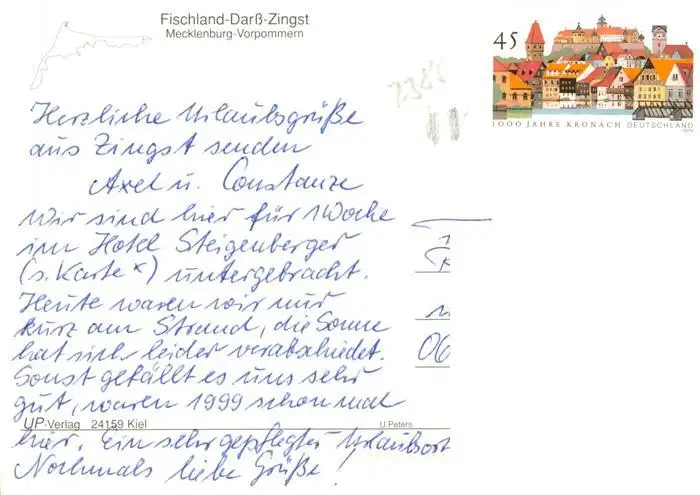 Fischland-Darß-Zingst
Mecklenburg-Vorpommern
45
1000 JAHRE KRONACH DEUTSCHLAND
Herzliche Urlaubsgrüße
aus Zingst senden
Axel u. Constanze
Wir sind hier für 1 Woche
im Hotel Steigenberger
(s. Karte x) untergebracht.
Heute waren wir nur
kurz am Strand, die Sonne
hat sich leider verabschiedet.
Sonst gefällt es uns sehr
gut, waren 1999 schon mal
hier. Ein sehr gepflegter Urlaubsort
Nochmals liebe Grüße!
06
UP-Verlag 24159 Kiel
U.Peters